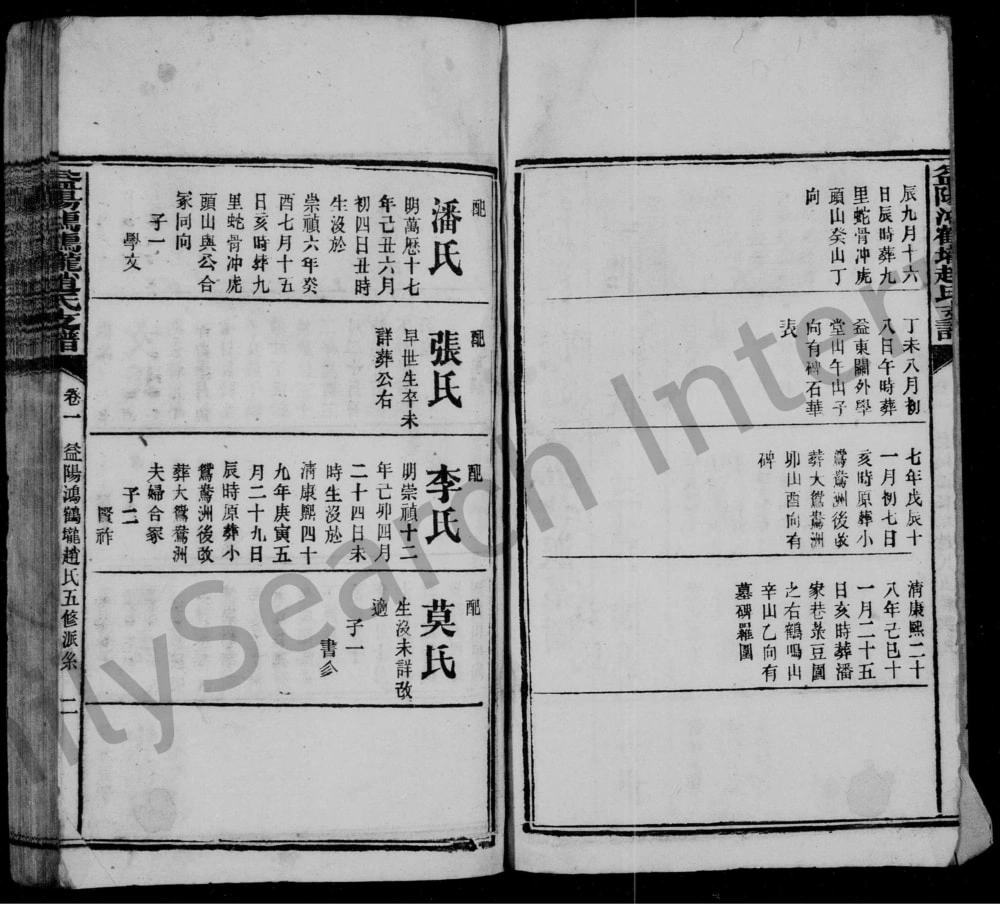 益陽鴻鶴壠趙氏支譜
辰九月十六
日辰時葬九
里蛇骨冲虎
頭山癸山丁
向
丁未八月初
八日午時葬
益東關外學
堂山午山子
向有碑石華
表
七年戊辰十
一月初七日
亥時原葬小
鴛鴦洲後改
葬大鴛鴦洲
卯山酉向有
碑
淸康熙二十
八年己巳十
一月二十五
日亥時葬潘
家巷菜豆園
之右鶴鳴山
辛山乙向有
墓碑羅圍
配
潘氏
明萬歷十七
年己丑六月
初四日丑時
生沒於
崇禎六年癸
酉七月十五
日亥時葬九
里蛇骨冲虎
頭山與公合
冢同向
子一
學文
配
張氏
早世生卒未
詳葬公右
配
李氏
明崇禎十二
年己卯四月
二十四日未
時生沒於
淸康熙四十
九年庚寅五
月二十九日
辰時原葬小
鴛鴦洲後改
葬大鴛鴦洲
夫婦合冢
子二
賢祚
配
莫氏
生沒未詳改
適
子一
書
益陽鴻鶴壠趙氏支譜
卷一
益陽鴻鶴壠趙氏五修派系
二
ilySearch Inter